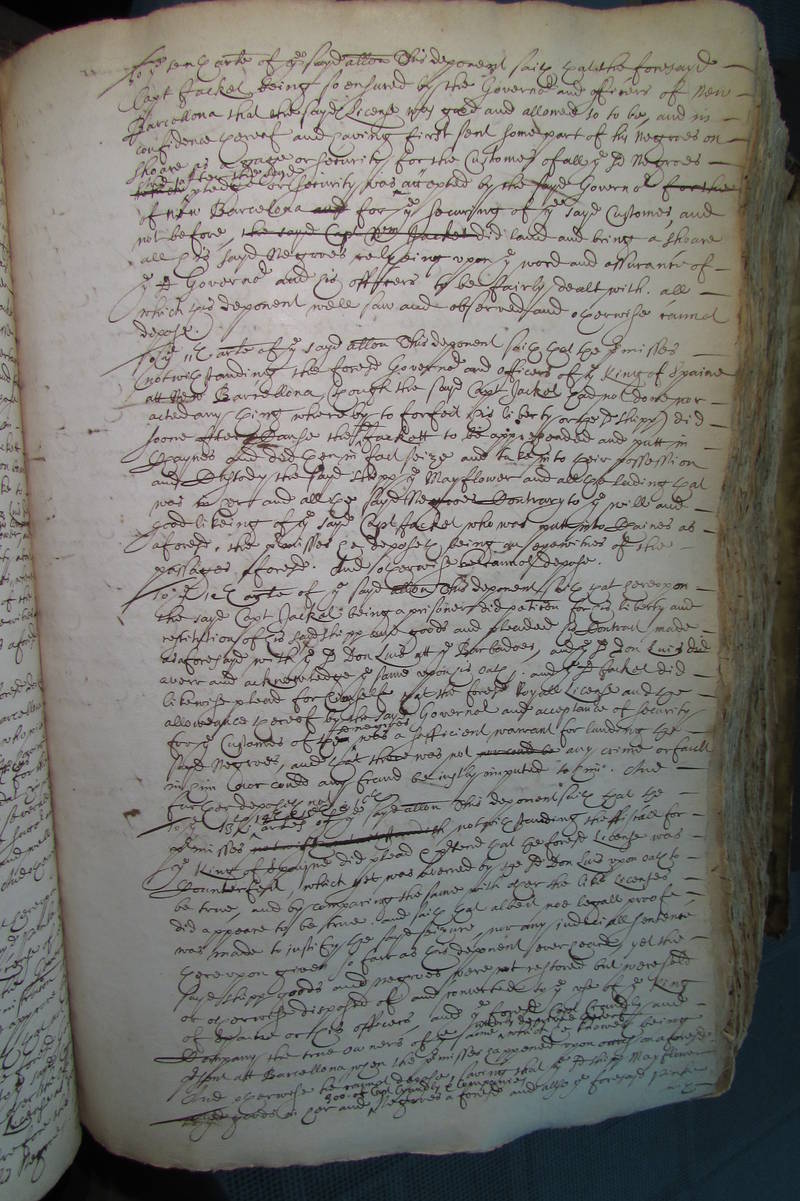 To the tenth arte of the sayd allon This deponent saith that the foresayd
Capt Jackel being so ensured by the Governor and officers of New
Barcellona that the sayd License was good and allowed to to be, and in
confidence thereof and having first sent some part of his Negroes on
shoare as a gage or security for the Customes of all the sd Negroes
and after the sayd
pledge or security was accepted by the sayd Governor for the
of new Barcelona and for the securing of the sayd Customes, and
not before, the sayd Capt Jackel did land and bring a shoare
all his sayd Negroes relyeing upon the word and assurance of
the sd Governor and his officers to be fairly dealt with. all
which this deponent well saw and observed and otherwise cannot
depose.
To the 11th arte of the sayd allon This deponent saith that the premisses
notwithstanding the foresd Governor and officers of the King of Spaine
att Barcellona (though the sayd Capt Jackel had not done nor
acted any thing whereby to forfeit his liberty or the sd shipp) did
soone after cause the sd Jackett to be apprehended and putt in
Chaynes and did then in that seize and take into their possession
and Custody the sayd shipp the Mayflower and all the lading that
was in her and all the sayd Negroes Contrary to the will and
good likeing of the sayd Capt Jackel who was putt into Chaines as
aforesd, the premisses he deposeth being an eyewitnes of the
passages aforesd. And otherwise he cannot depose.
To the 12th arte of the sayd allon This deponent saith that hereupon
the sayd Capt Jackel being a prisoner did petition for his liberty and
restitution of his said shipp and goods and pleaded his Contract made
as aforesayd with the sd Don Luis att the Barbadoes, and the sd Don Luis did
averr and acknowledge the same upon his oath, and the sd Jackel did
likewise plead for himselfe that the foresd Royall License and the
allowance thereof by the sayd Governor and acceptance of security
for the Customes of the Negroes was a sufficient warrant for landing the
sayd Negroes, and that there was not any crime or fault
in him nor could any fraud be justly imputed to him. And
further deposeth not
To the 13th arte of the sayd allon This deponent saith that the
premisses notwithstanding the ffiscall for
the King of Spayne did plead pretend that the foresd License was
Counterfeit, which yet was averred by the sd Don Luis upon oath to
be true, and by comparing the same with other the like licenses
did appeare to be true. and saith that albeit noe legall proofe
was made to justify the sayd seizure, nor any judiciall sentence
thereupon given so farr as this deponent ever heard, yet the
sayd shipp goods and negroes were not restored but were sold
or otherwise disposed of and converted to the use of the King
of Spaine or his officers, and the foresd Capt Crandly and
Company the true owners of the same
being
present att Barcellona when the premisses happened upon occasion aforesd
And otherwise he cannot depose saving that the sd shipp Mayflower
goods in her and Negroes aforesd and allsoe the foresayd